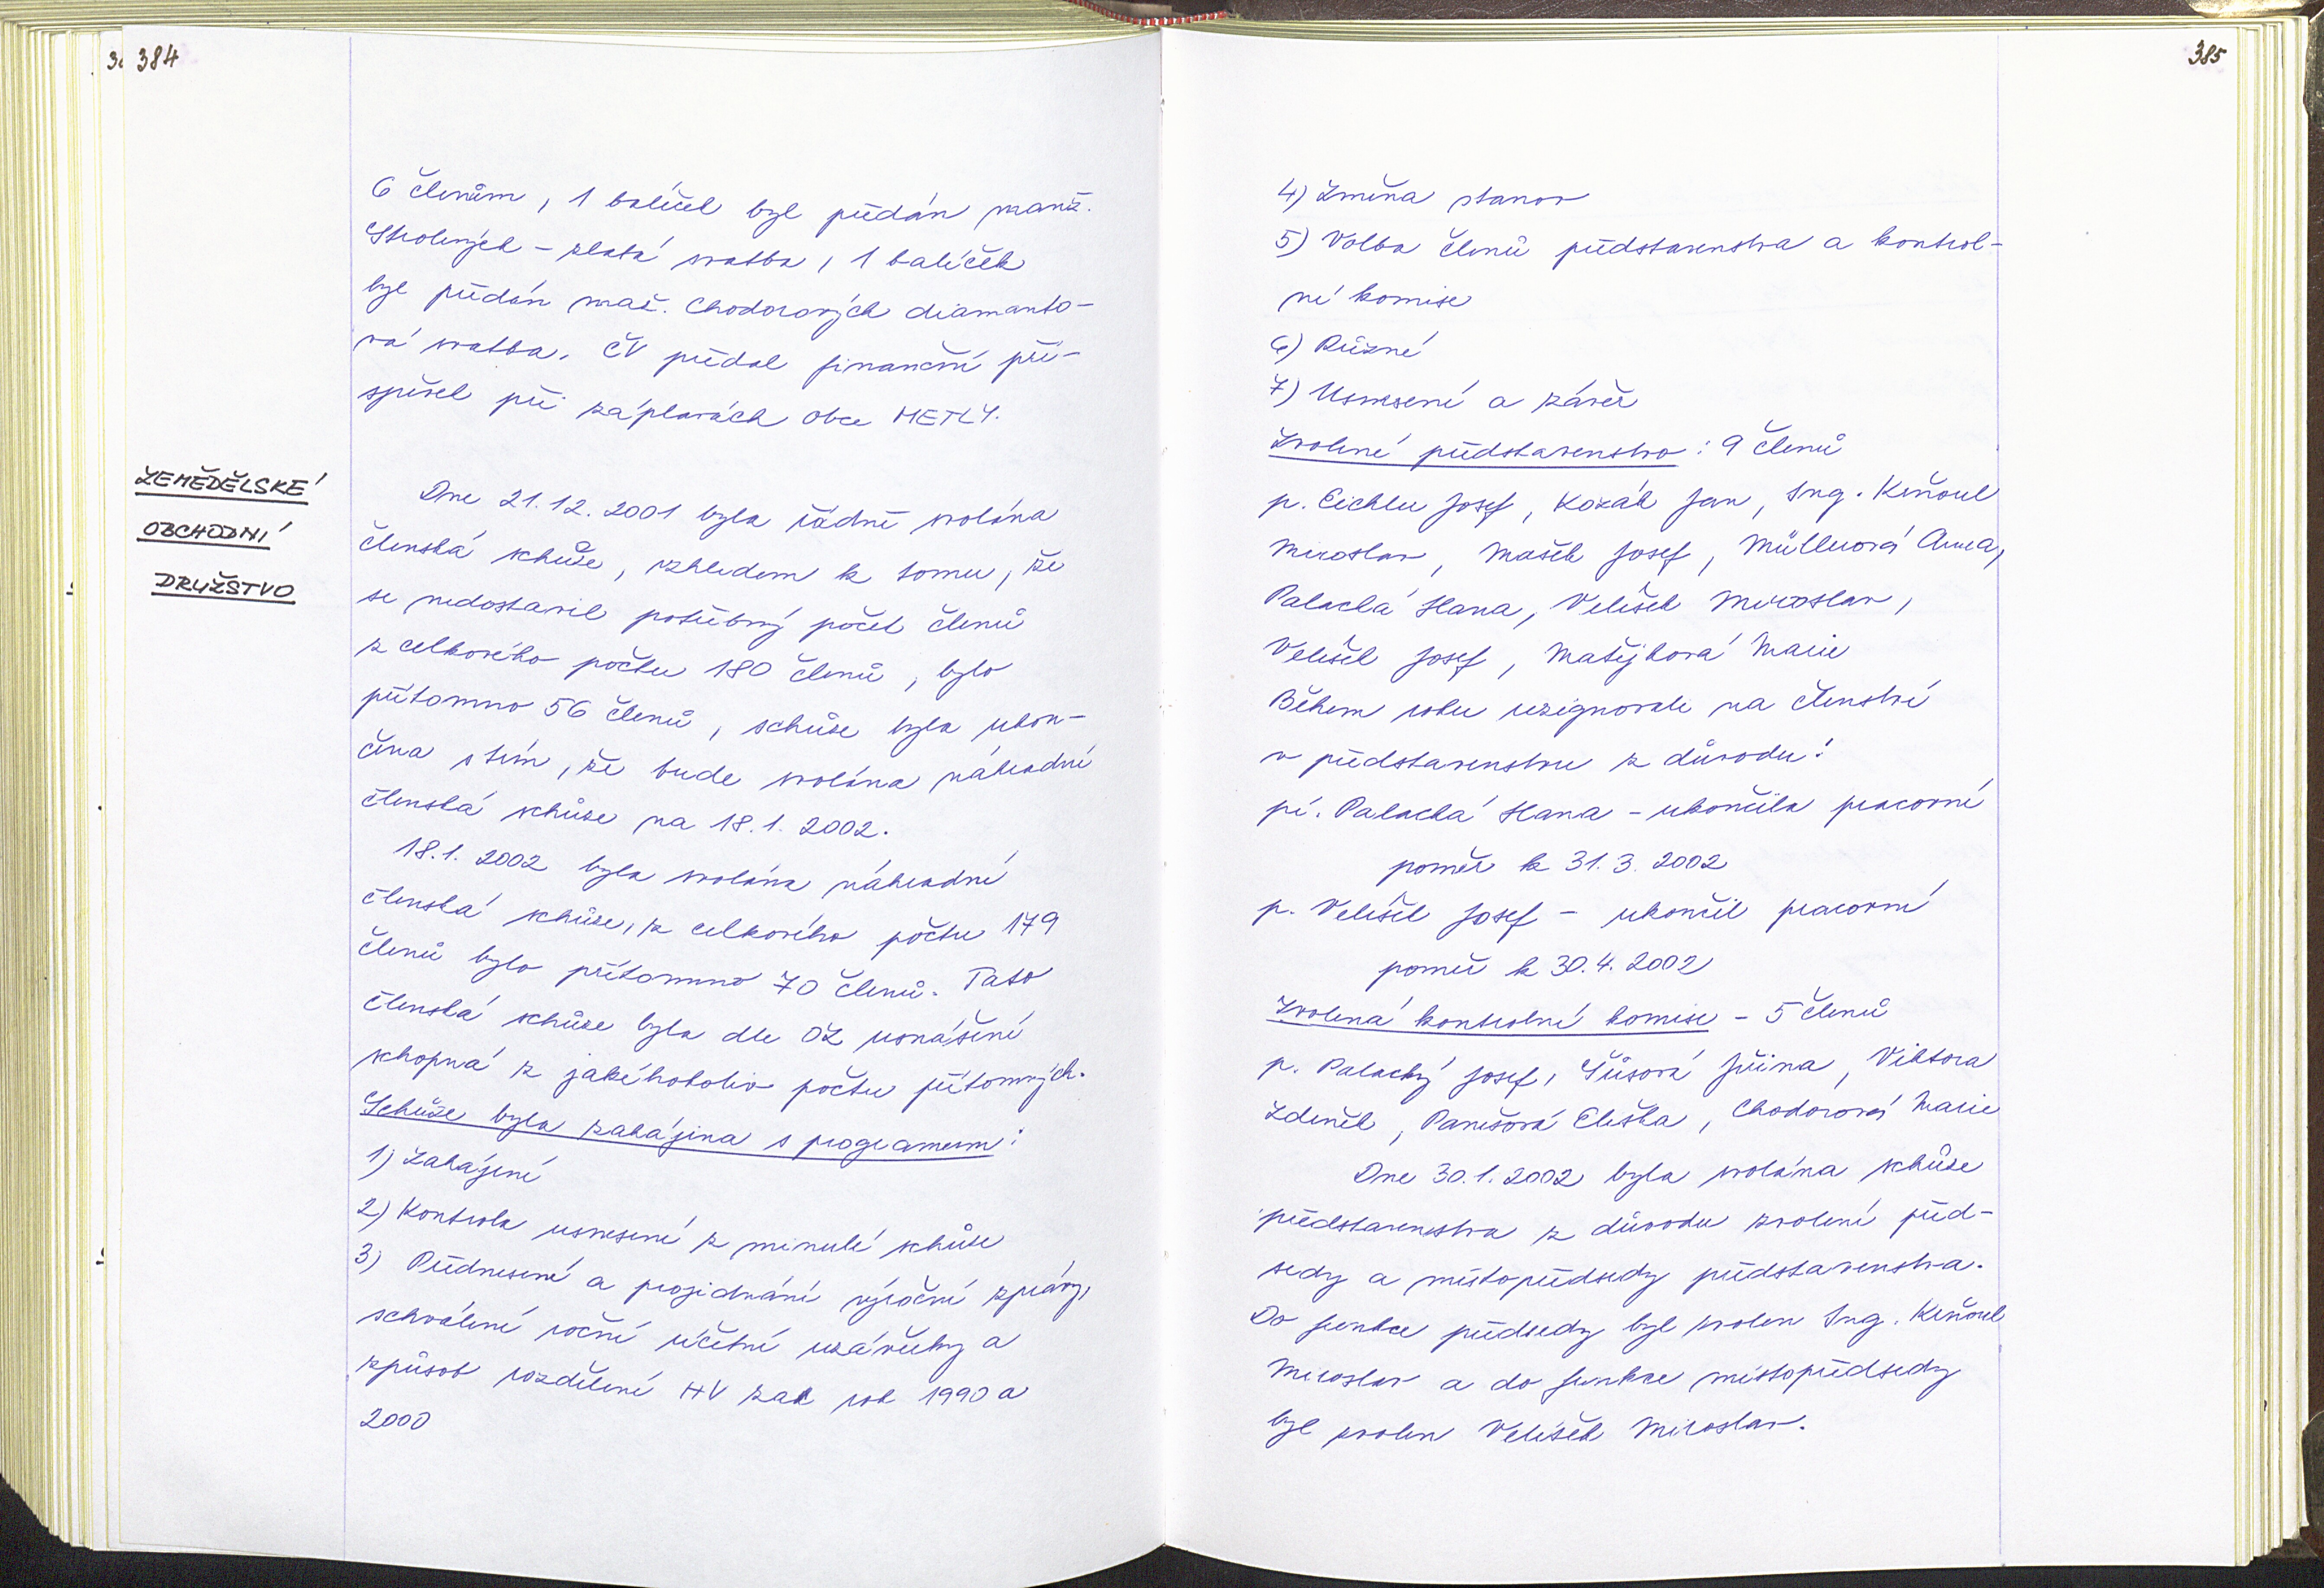 384
6 členům, 1 balíček byl předán manž.
Strolených – zlatá svatba, 1 balíček
byl předán maž. Chodorových diamanto-
vá svatba. ČV předal finanční pří-
spěvek při záplavách obce METLY.
ZEMĚDĚLSKÉ
OBCHODNÍ
DRUŽSTVO
Dne 21.12.2001 byla řádně svolána
členská schůze, vzhledem k tomu, že
se nedostavil potřebný počet členů
z celkového počtu 180 členů, bylo
přítomno 56 členů, schůze byla ukon-
čena s tím, že bude svolána náhradní
členská schůze na 18.1.2002.
18.1.2002 byla svolána náhradní
členská schůze, z celkového počtu 179
členů bylo přítomno 70 členů. Tato
členská schůze byla dle OZ usnášení
schopná z jakéhokoliv počtu přítomných.
Schůze byla zahájena s programem:
1) Zahájení
2) Kontrola usnesení z minulé schůze
3) Přednesení a projednání výroční zprávy,
schválení roční účetní uzávěrky a
způsob rozdělení HV za rok 1990 a
2000
385
4) Změna stanov
5) Volba členů představenstva a kontrol-
ní komise
6) Různé
7) Usnesení a závěr
Zvolené představenstvo: 9 členů
p. Eichler Josef, Kozák Jan, Ing. Krňoul
Miroslav, Mašek Josef, Müllerová Anna,
Palacká Hana, Velíšek Miroslav,
Velíšek Josef, Matějková Marie
Během roku rezignovali na členství
v představenstvu z důvodu:
pí. Palacká Hana – ukončila pracovní
poměr k 31.3.2002
p. Velíšek Josef – ukončil pracovní
poměr k 30.4.2002
Zvolená kontrolní komise – 5 členů
p. Palacký Josef, Jiřina, Viktora
Zdeněk, Panešová Eliška, Chodorová Marie
Dne 30.1.2002 byla svolána schůze
představenstva z důvodu zvolení před-
sedy a místopředsedy představenstva.
Do funkce předsedy byl zvolen Ing. Krňoul
Miroslav a do funkce místopředsedy
byl zvolen Velíšek Miroslav.